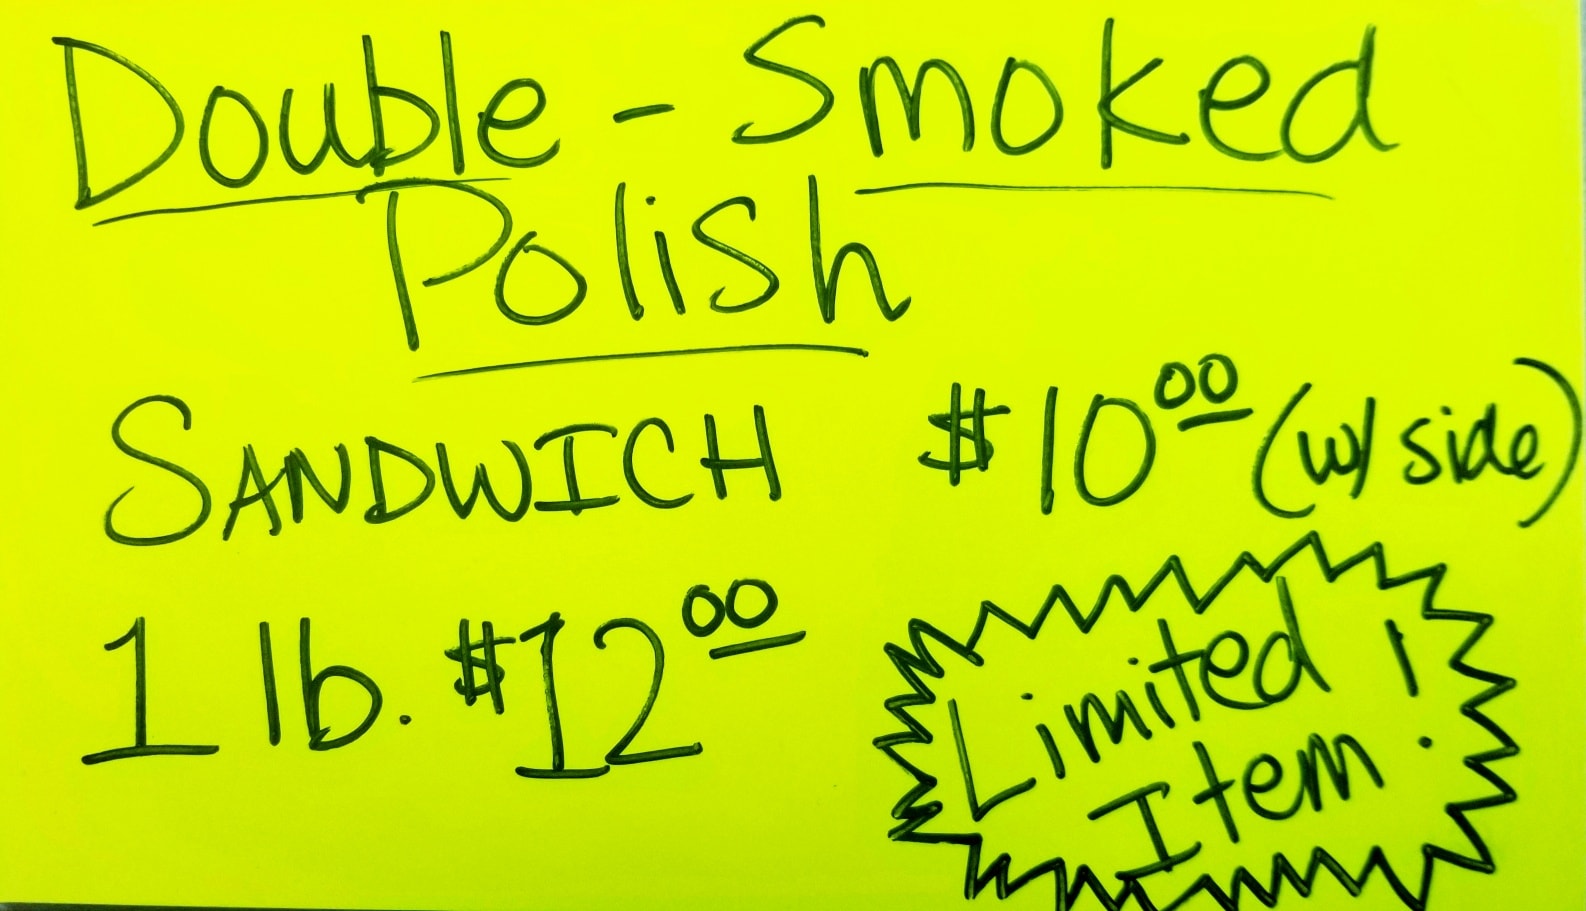 Double - Smoked
Polish
SANDWICH $10.00 (w/ side)
1 lb. $12.00
Limited
Item!